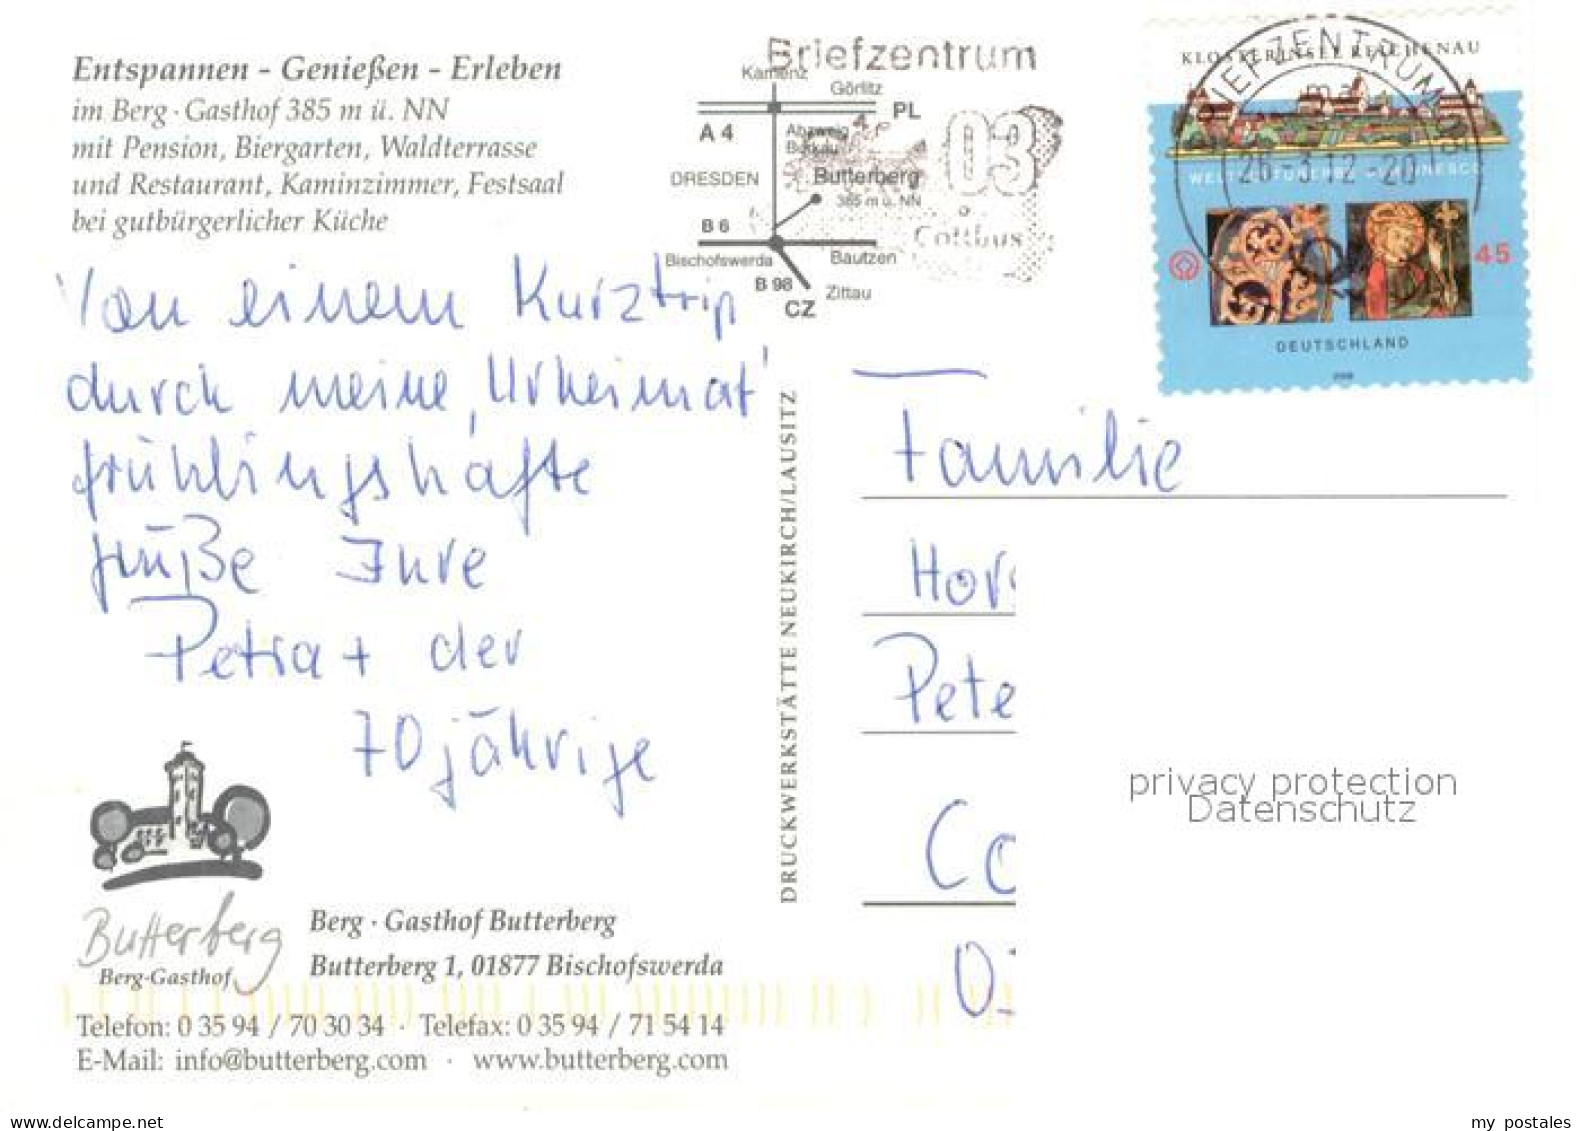 Entspannen - Genießen - Erleben
im Berg · Gasthof 385 m ü. NN
mit Pension, Biergarten, Waldterrasse
und Restaurant, Kaminzimmer, Festsaal
bei gutbürgerlicher Küche
Briefzentrum
03
Cottbus
Kamenz
Görlitz
PL
A 4
Abzweig
Burkau
4
DRESDEN
Butterberg
385 m ü. NN
B 6
Bischofswerda
Bautzen
B 98
Zittau
CZ
KLOSTERINSEL REICHENAU
BRIEFZENTRUM
26 -3 12 -20
45
DEUTSCHLAND
Von einem Kurztrip
durch meine ‚Urheimat'
frühlingshafte
Grüße Ihre
Petra + der
70jährige
DRUCKWERKSTÄTTE NEUKIRCH/LAUSITZ
Familie
Hor
Pete
Co
privacy protection
Datenschutz
Butterberg
Berg-Gasthof
Berg · Gasthof Butterberg
Butterberg 1, 01877 Bischofswerda
Telefon: 0 35 94 / 70 30 34 · Telefax: 0 35 94 / 71 54 14
E-Mail: info@butterberg.com · www.butterberg.com
delcampe.net
my postales